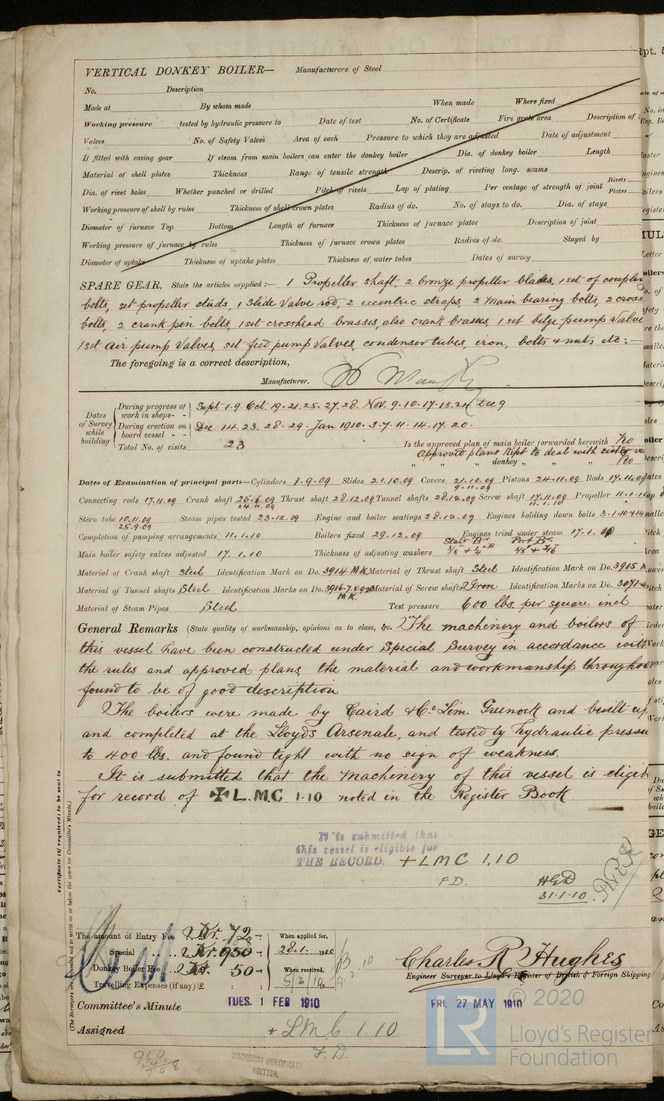 VERTICAL DONKEY BOILER— Manufacturers of Steel
No. Description
Made at By whom made When made Where fixed
Working pressure tested by hydraulic pressure to Date of test No. of Certificate Fire grate area Description of
Valves No. of Safety Valves Area of each Pressure to which they are adjusted Date of adjustment
If fitted with easing gear If steam from main boilers can enter the donkey boiler Dia. of donkey boiler Length
Material of shell plates Thickness Range of tensile strength Descrip. of riveting long. seams
Dia. of rivet holes Whether punched or drilled Pitch of rivets Lap of plating Per centage of strength of joint Rivets Plates
Working pressure of shell by rules Thickness of shell crown plates Radius of do. No. of stays to do. Dia. of stays
Diameter of furnace Top Bottom Length of furnace Thickness of furnace plates Description of joint
Working pressure of furnace by rules Thickness of furnace crown plates Radius of do. Stayed by
Diameter of uptake Thickness of uptake plates Thickness of water tubes Dates of survey
SPARE GEAR. State the articles supplied :— 1 Propeller shaft, 2 bronze propeller blades, 1 set of coupler
bolts, set propeller studs, 1 Slide Valve rod, 2 eccentric straps, 2 Main bearing bolts, 2 cross
bolts, 2 crank pin bolts, 1 set crosshead brasses, also crank brasses, 1 set bilge pump valve
1 set air pump valves, set feed pump valves, condenser tubes, iron, bolts & nuts etc :—
The foregoing is a correct description,
Manufacturer.
Dates of Survey while building
During progress of work in shops - - Sept. 1. 9. Oct. 19. 21. 25. 27. 28. Nov. 9. 10. 17. 18. 24 Dec 9
During erection on board vessel - - Dec. 14. 23. 28. 29. Jan 1910. 3. 7. 11. 14. 17. 20.
Total No. of visits 23
Is the approved plan of main boiler forwarded herewith No
Approved plans kept to deal with sister
" " " donkey " " " No
Dates of Examination of principal parts—Cylinders 1.9.09 Slides 21.10.09 Covers 21.10.09 9.11.09 Pistons 24.11.09 Rods 17.11.09
Connecting rods 17.11.09 Crank shaft 25.6.09 24.11.09 Thrust shaft 28.12.09 Tunnel shafts 28.12.09 Screw shaft 17.11.09 11.1.10 Propeller 11.1.10
Stern tube 10.11.09 25.9.09 Steam pipes tested 23.12.09 Engine and boiler seatings 28.12.09 Engines holding bolts 3.1.10
Completion of pumping arrangements 11.1.10 Boilers fixed 29.12.09 Engines tried under steam 17.1.10
Main boiler safety valves adjusted 17.1.10 Thickness of adjusting washers
Material of Crank shaft Steel Identification Mark on Do. 3914 MK Material of Thrust shaft Steel Identification Mark on Do. 3915
Material of Tunnel shafts Steel Identification Marks on Do. MK Material of Screw shafts Iron Identification Marks on Do. 3071
Material of Steam Pipes Steel Test pressure 600 lbs. per square inch
General Remarks (State quality of workmanship, opinions as to class, &c. The machinery and boilers of
this vessel have been constructed under Special Survey in accordance with
the rules and approved plans, the material and workmanship throughou
found to be of good description
The boilers were made by Caird & Co Lim. Greenock and built up
and completed at the Lloyds Arsenale, and tested by hydraulic pressu
to 400 lbs. and found tight with no sign of weakness.
It is submitted that the Machinery of this vessel is eligib
for record of ✠ L.M.C. 1.10 noted in the Register Book
It is submitted that
this vessel is eligible for
THE RECORD. + LMC 1.10
F.D.
31.1.10
Certificate (if required) to be sent to
(The Surveyors are requested not to write on or below the space for Committee's Minute.)
The amount of Entry Fee Kr. 72 :
Special Kr. 950 :
Donkey Boiler Fee Kr. 50 :
Travelling Expenses (if any) £ : :
When applied for,
28.1.1910
When received,
Charles R Hughes
Engineer Surveyor to Lloyd's Register of British & Foreign Shipping.
Committee's Minute TUES. 1 FEB 1910 FRI. 27 MAY 1910
Assigned + L.M.C. 1.10
F.D.
MACHINERY CERTIFICATE
WRITTEN.
© 2020
LR
Lloyd's Register
Foundation